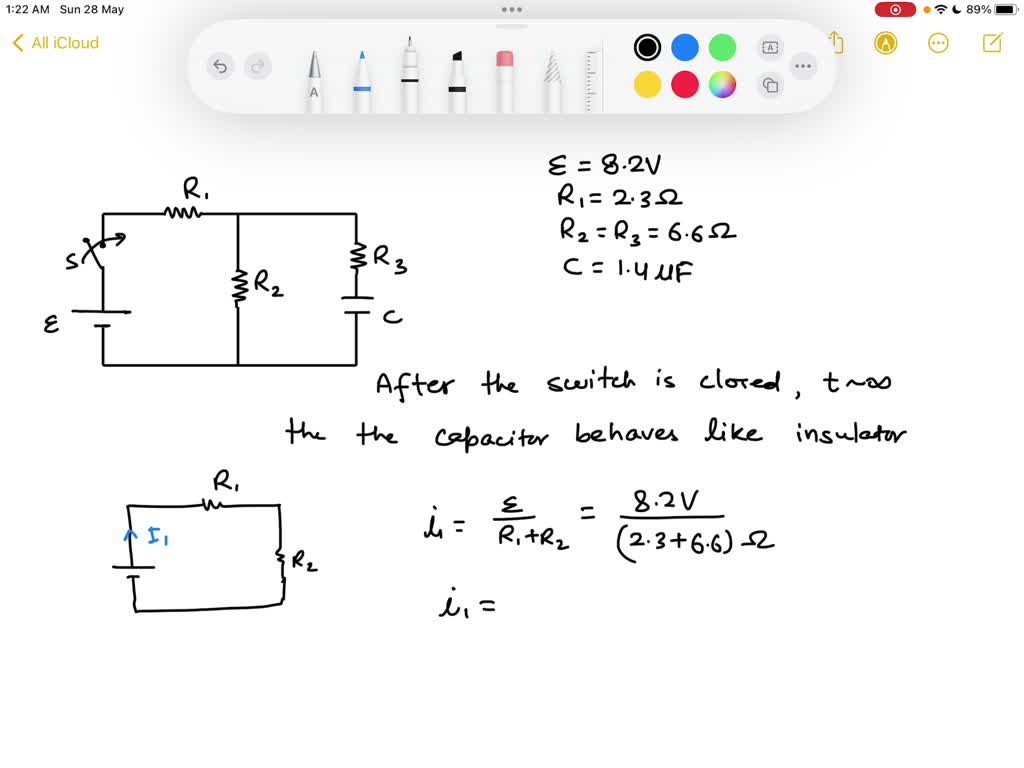 1:22 AM Sun 28 May
89%
All iCloud
A
A
ε = 8.2V
R₁ = 2.3Ω
R₂ = R₃ = 6.6Ω
C = 1.4 μF
R₁
S
R₂
R₃
ε
C
After the switch is closed, t~∞
the the capacitor behaves like insulator
R₁
I₁
R₂
i₁ = ε/(R₁+R₂) = 8.2V/(2.3+6.6)Ω
i₁ =